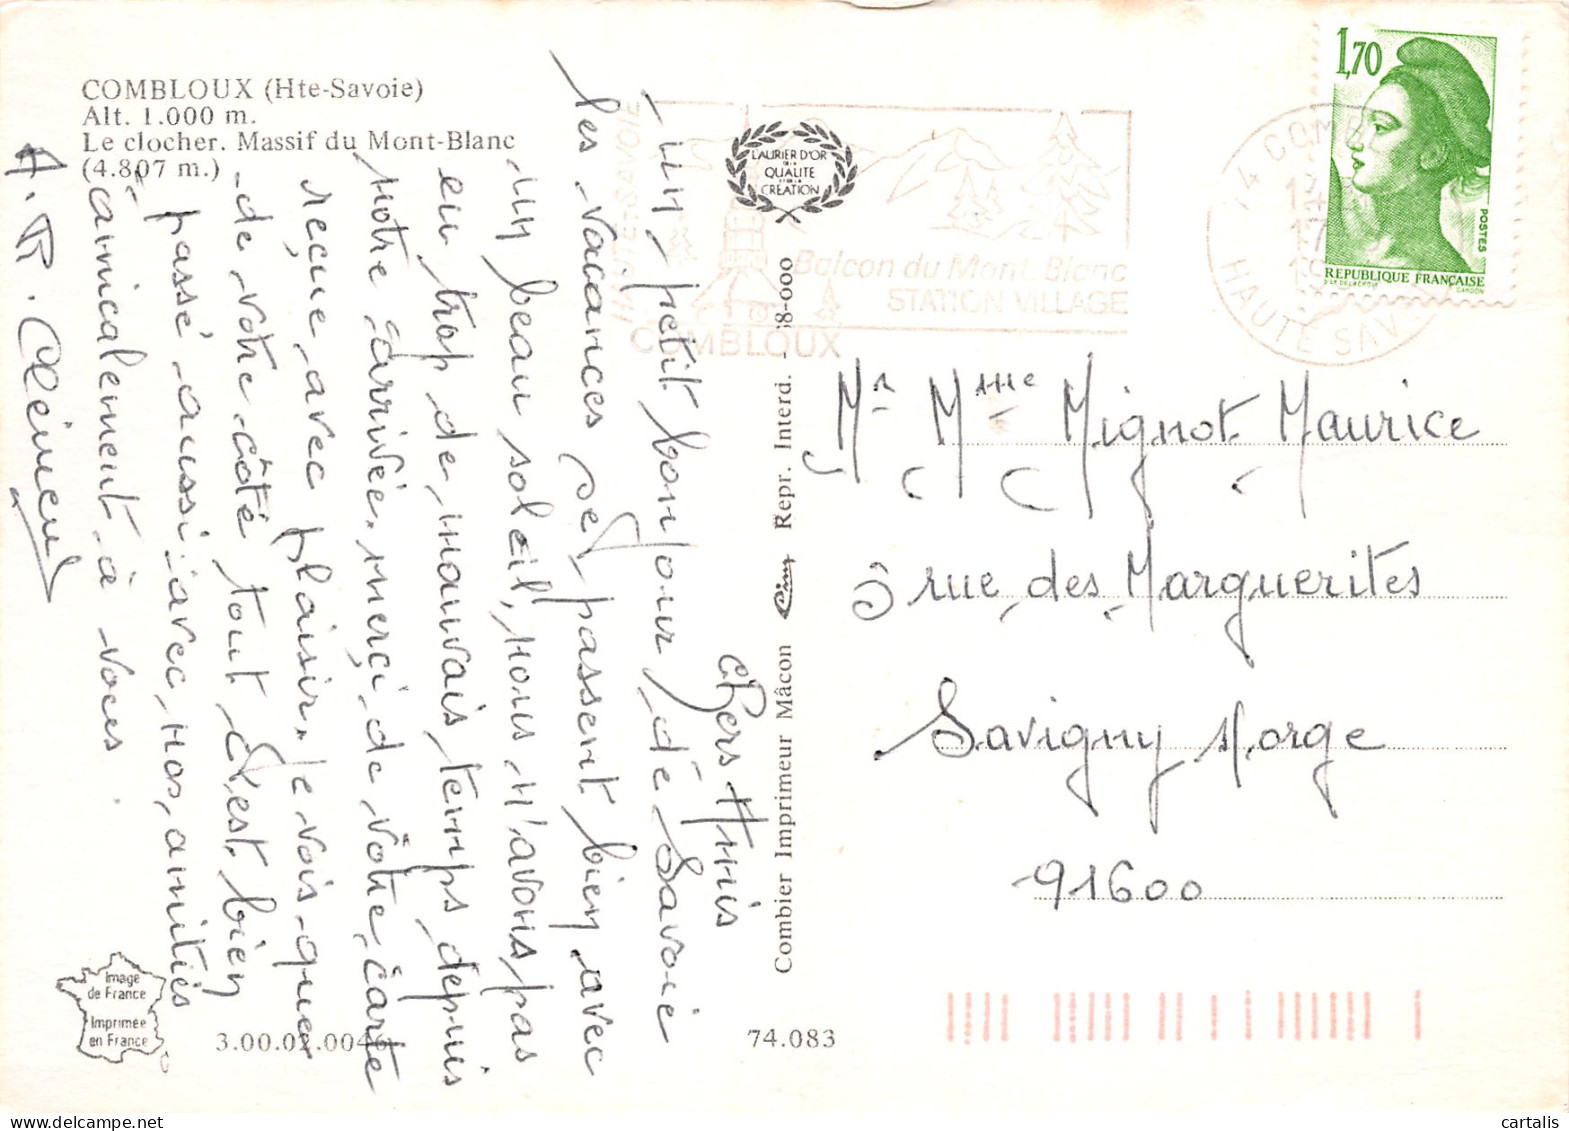 COMBLOUX (Hte-Savoie)
Alt. 1.000 m.
Le clocher. Massif du Mont-Blanc
(4.807 m.)
chers Amis
un petit bonjour de Savoie
les vacances se passent bien avec
un beau soleil, nous n'avons pas
eu trop de mauvais temps depuis
notre arrivée. merci de vôtre carte
reçue avec plaisir. je vois que
de votre côté tout c'est bien
passé aussi. avec nos amitiés
amicalement à vous
A. R. Clément
HAUTE-SAVOIE
COMBLOUX
Balcon du Mont-Blanc
STATION VILLAGE
LAURIER D'OR
DE LA
QUALITÉ
ET DE LA
CRÉATION
Combier Imprimeur Mâcon Cim Repr. Interd. 68-000
1,70
POSTES
RÉPUBLIQUE FRANÇAISE
GANDON
74 COMB
17
HAUTE SAV
Mr Mme Mignot Maurice
3 rue des Marguerites
Savigny s/orge
91600
Image
de France
Imprimée
en France
3.00.02.0046
74.083
cartalis